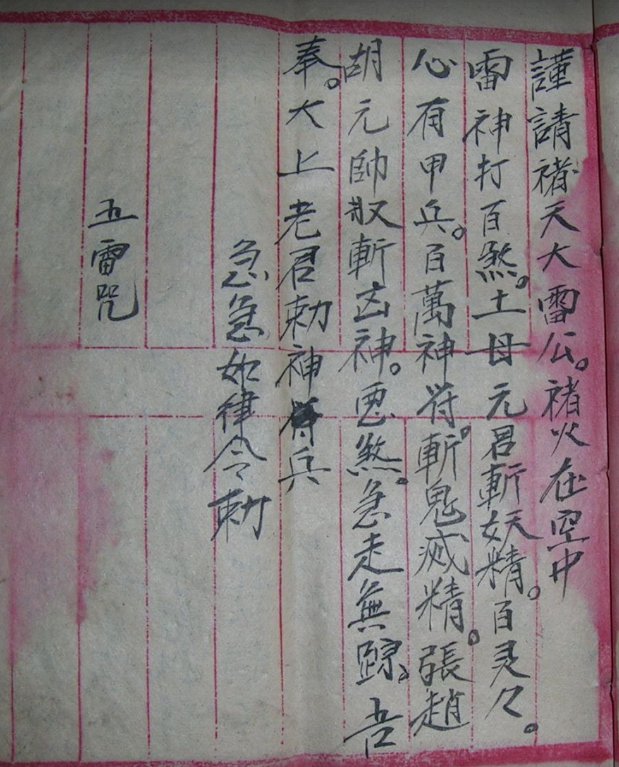 謹請禇天大雷公。禇火在空中
雷神打百煞。土母元君斬妖精。百灵々。
心有甲兵。百萬神符。斬鬼滅精。張趙
胡元帥収斬凶神。惡煞。急走無踪。吾
奉。大上老君勅神符兵
急急如律令勅
五雷咒